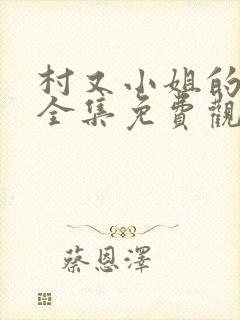 村又小姐的
全集免費觀
蔡恩澤